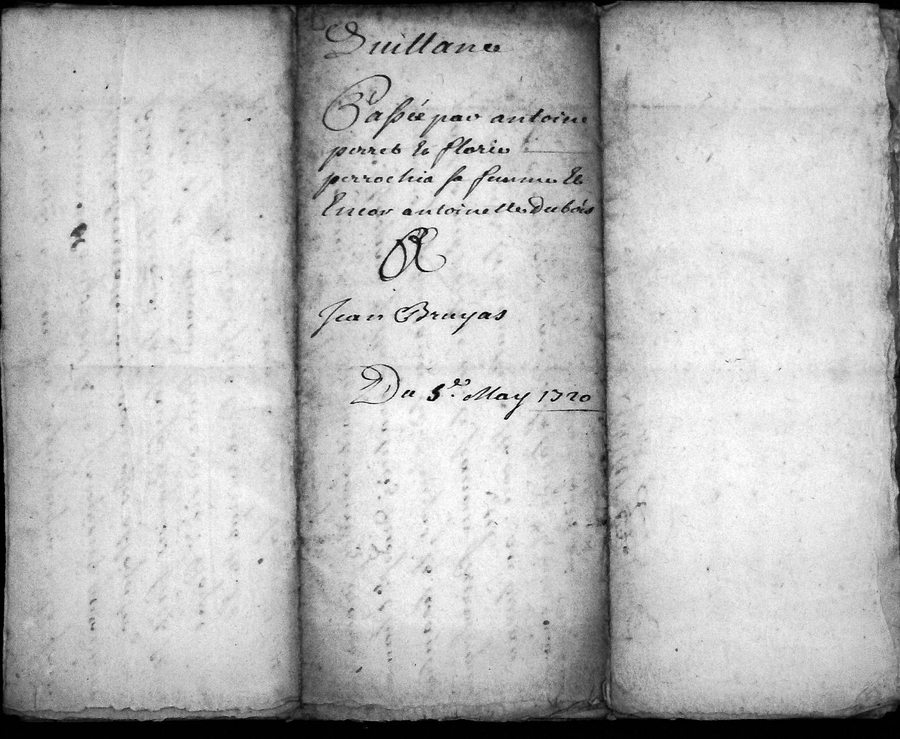 Quittance
Passée par antoine
perret et florie
perrochia sa femme et
Encor antoinette Dubois
A
Jean Bruyas
Du 5.e May 1720